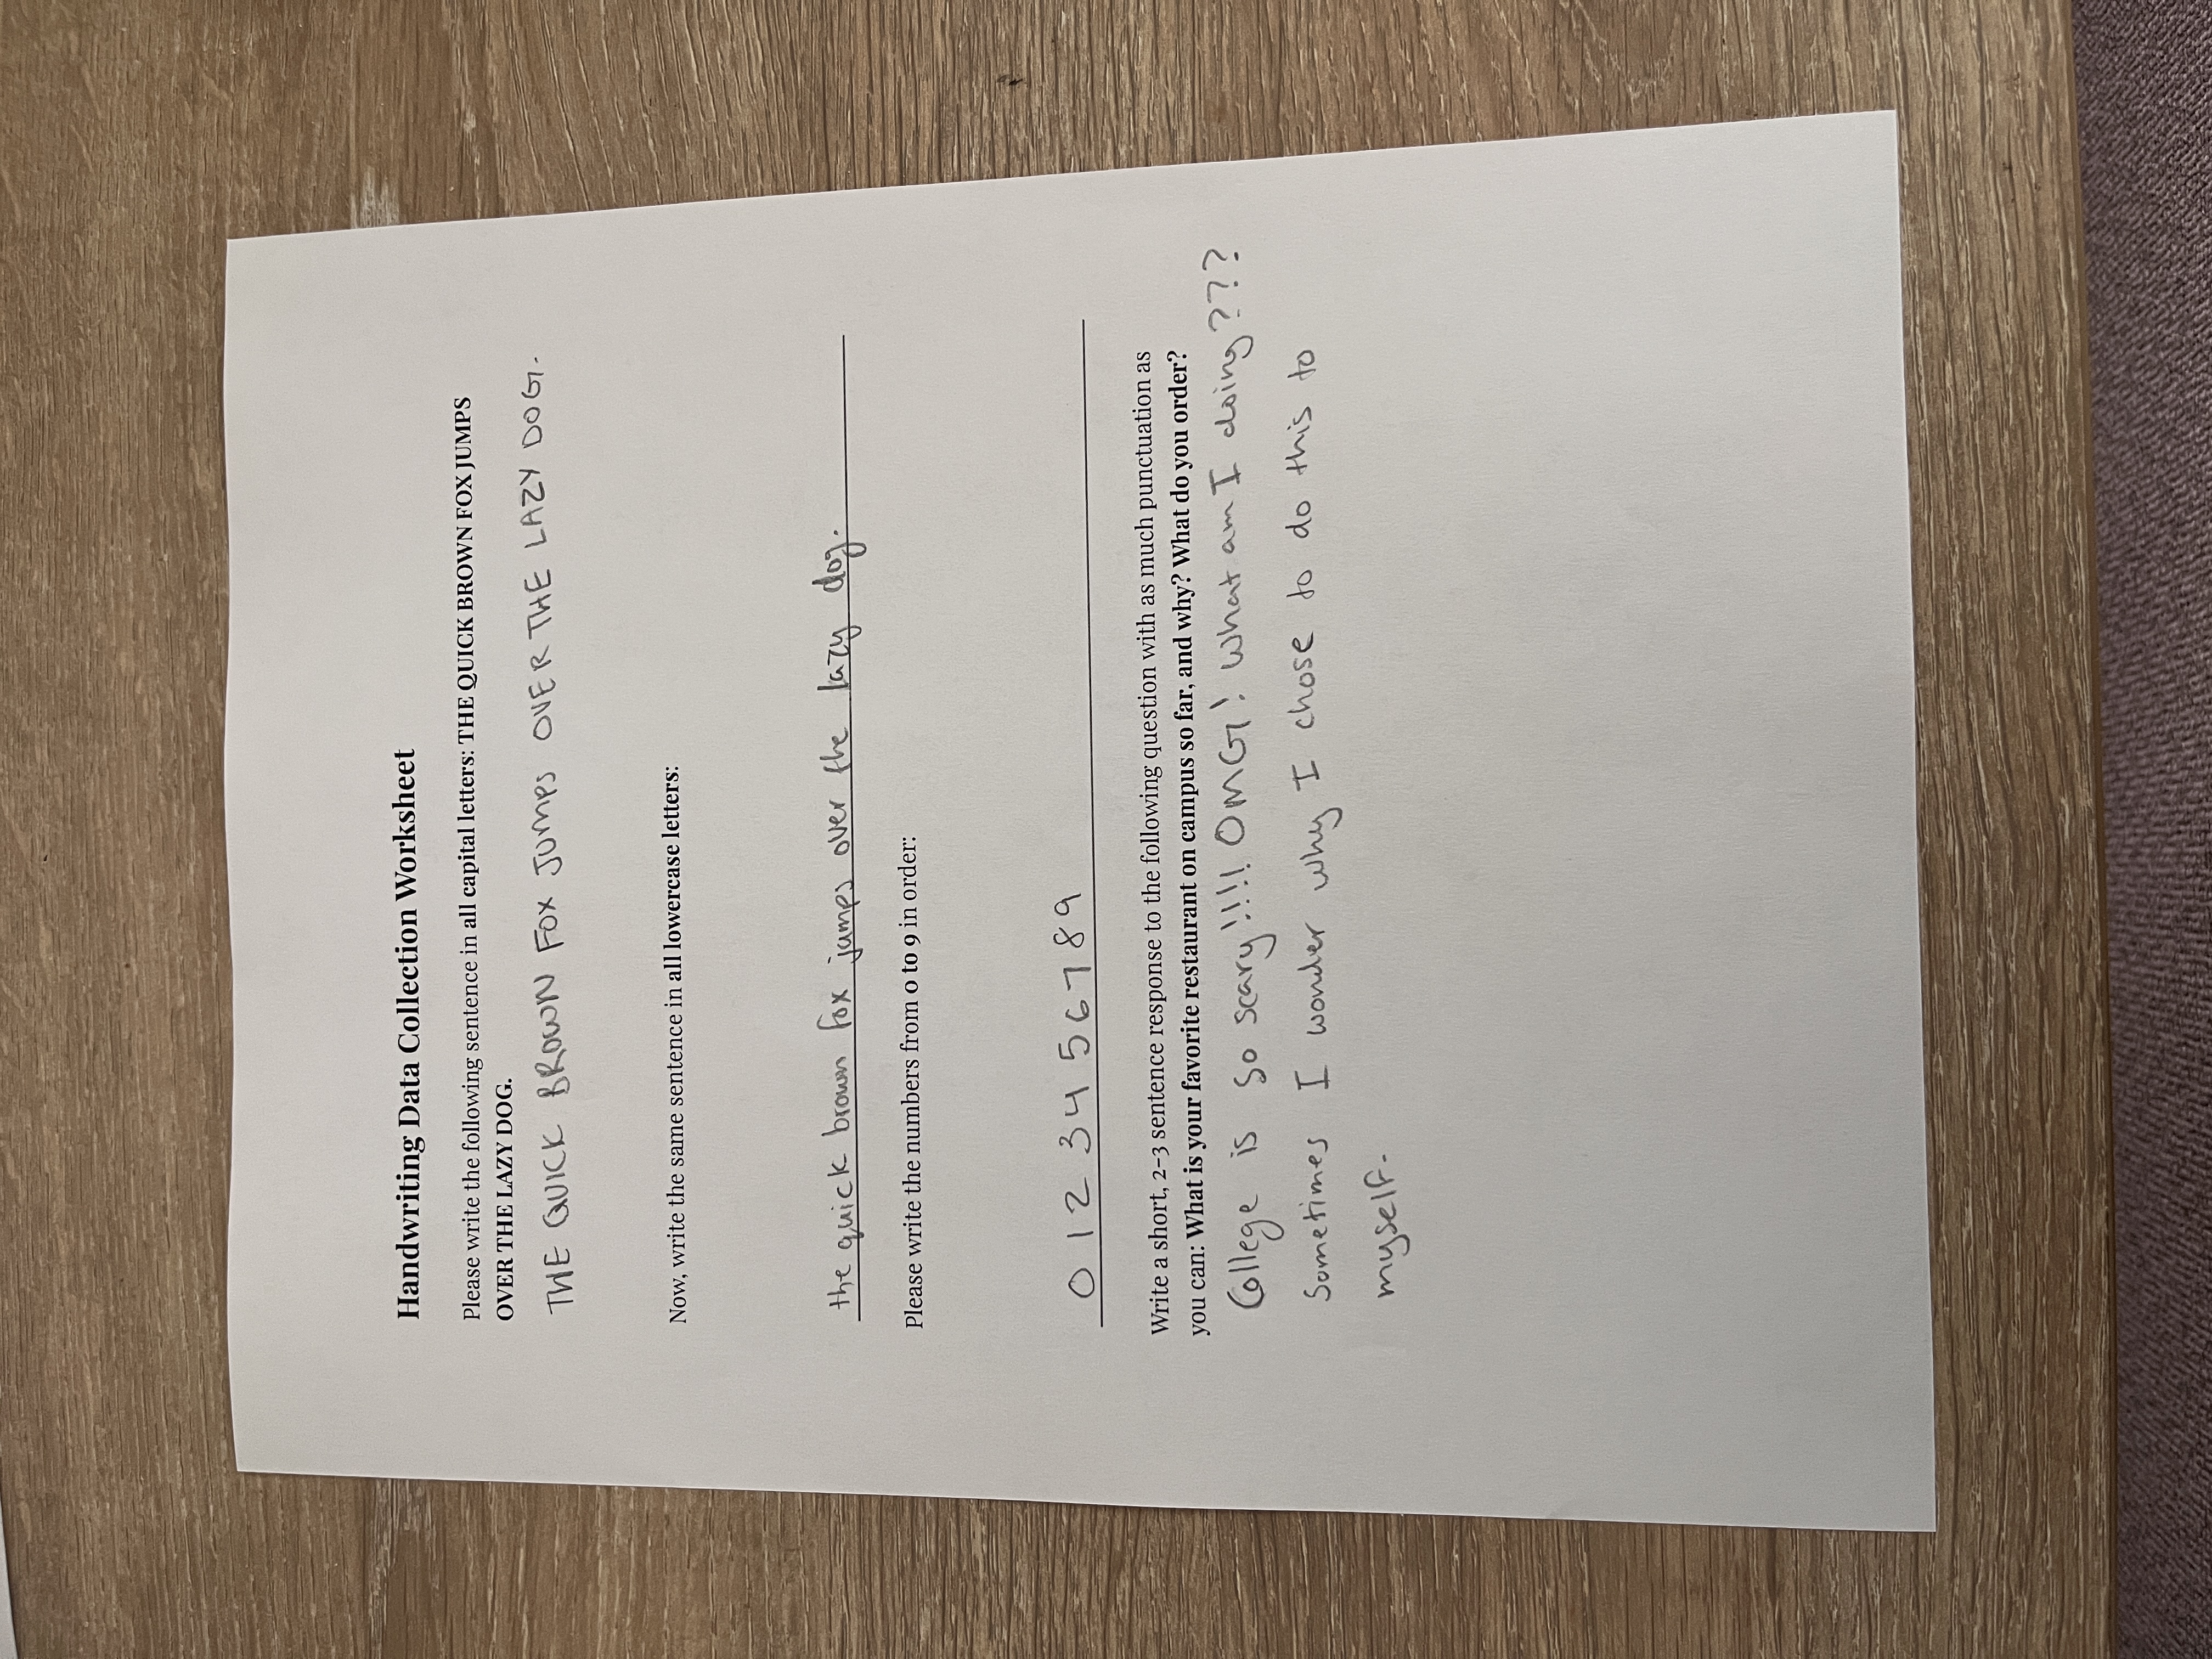 Handwriting Data Collection Worksheet
Please write the following sentence in all capital letters: THE QUICK BROWN FOX JUMPS
OVER THE LAZY DOG.
THE QUICK BROWN FOX JUMPS OVER THE LAZY DOG.
Now, write the same sentence in all lowercase letters:
the quick brown fox jumps over the lazy dog.
Please write the numbers from 0 to 9 in order:
0 1 2 3 4 5 6 7 8 9
Write a short, 2–3 sentence response to the following question with as much punctuation as
you can: What is your favorite restaurant on campus so far, and why? What do you order?
College is so scary!!!! OMG! What am I doing???
Sometimes I wonder why I chose to do this to
myself.